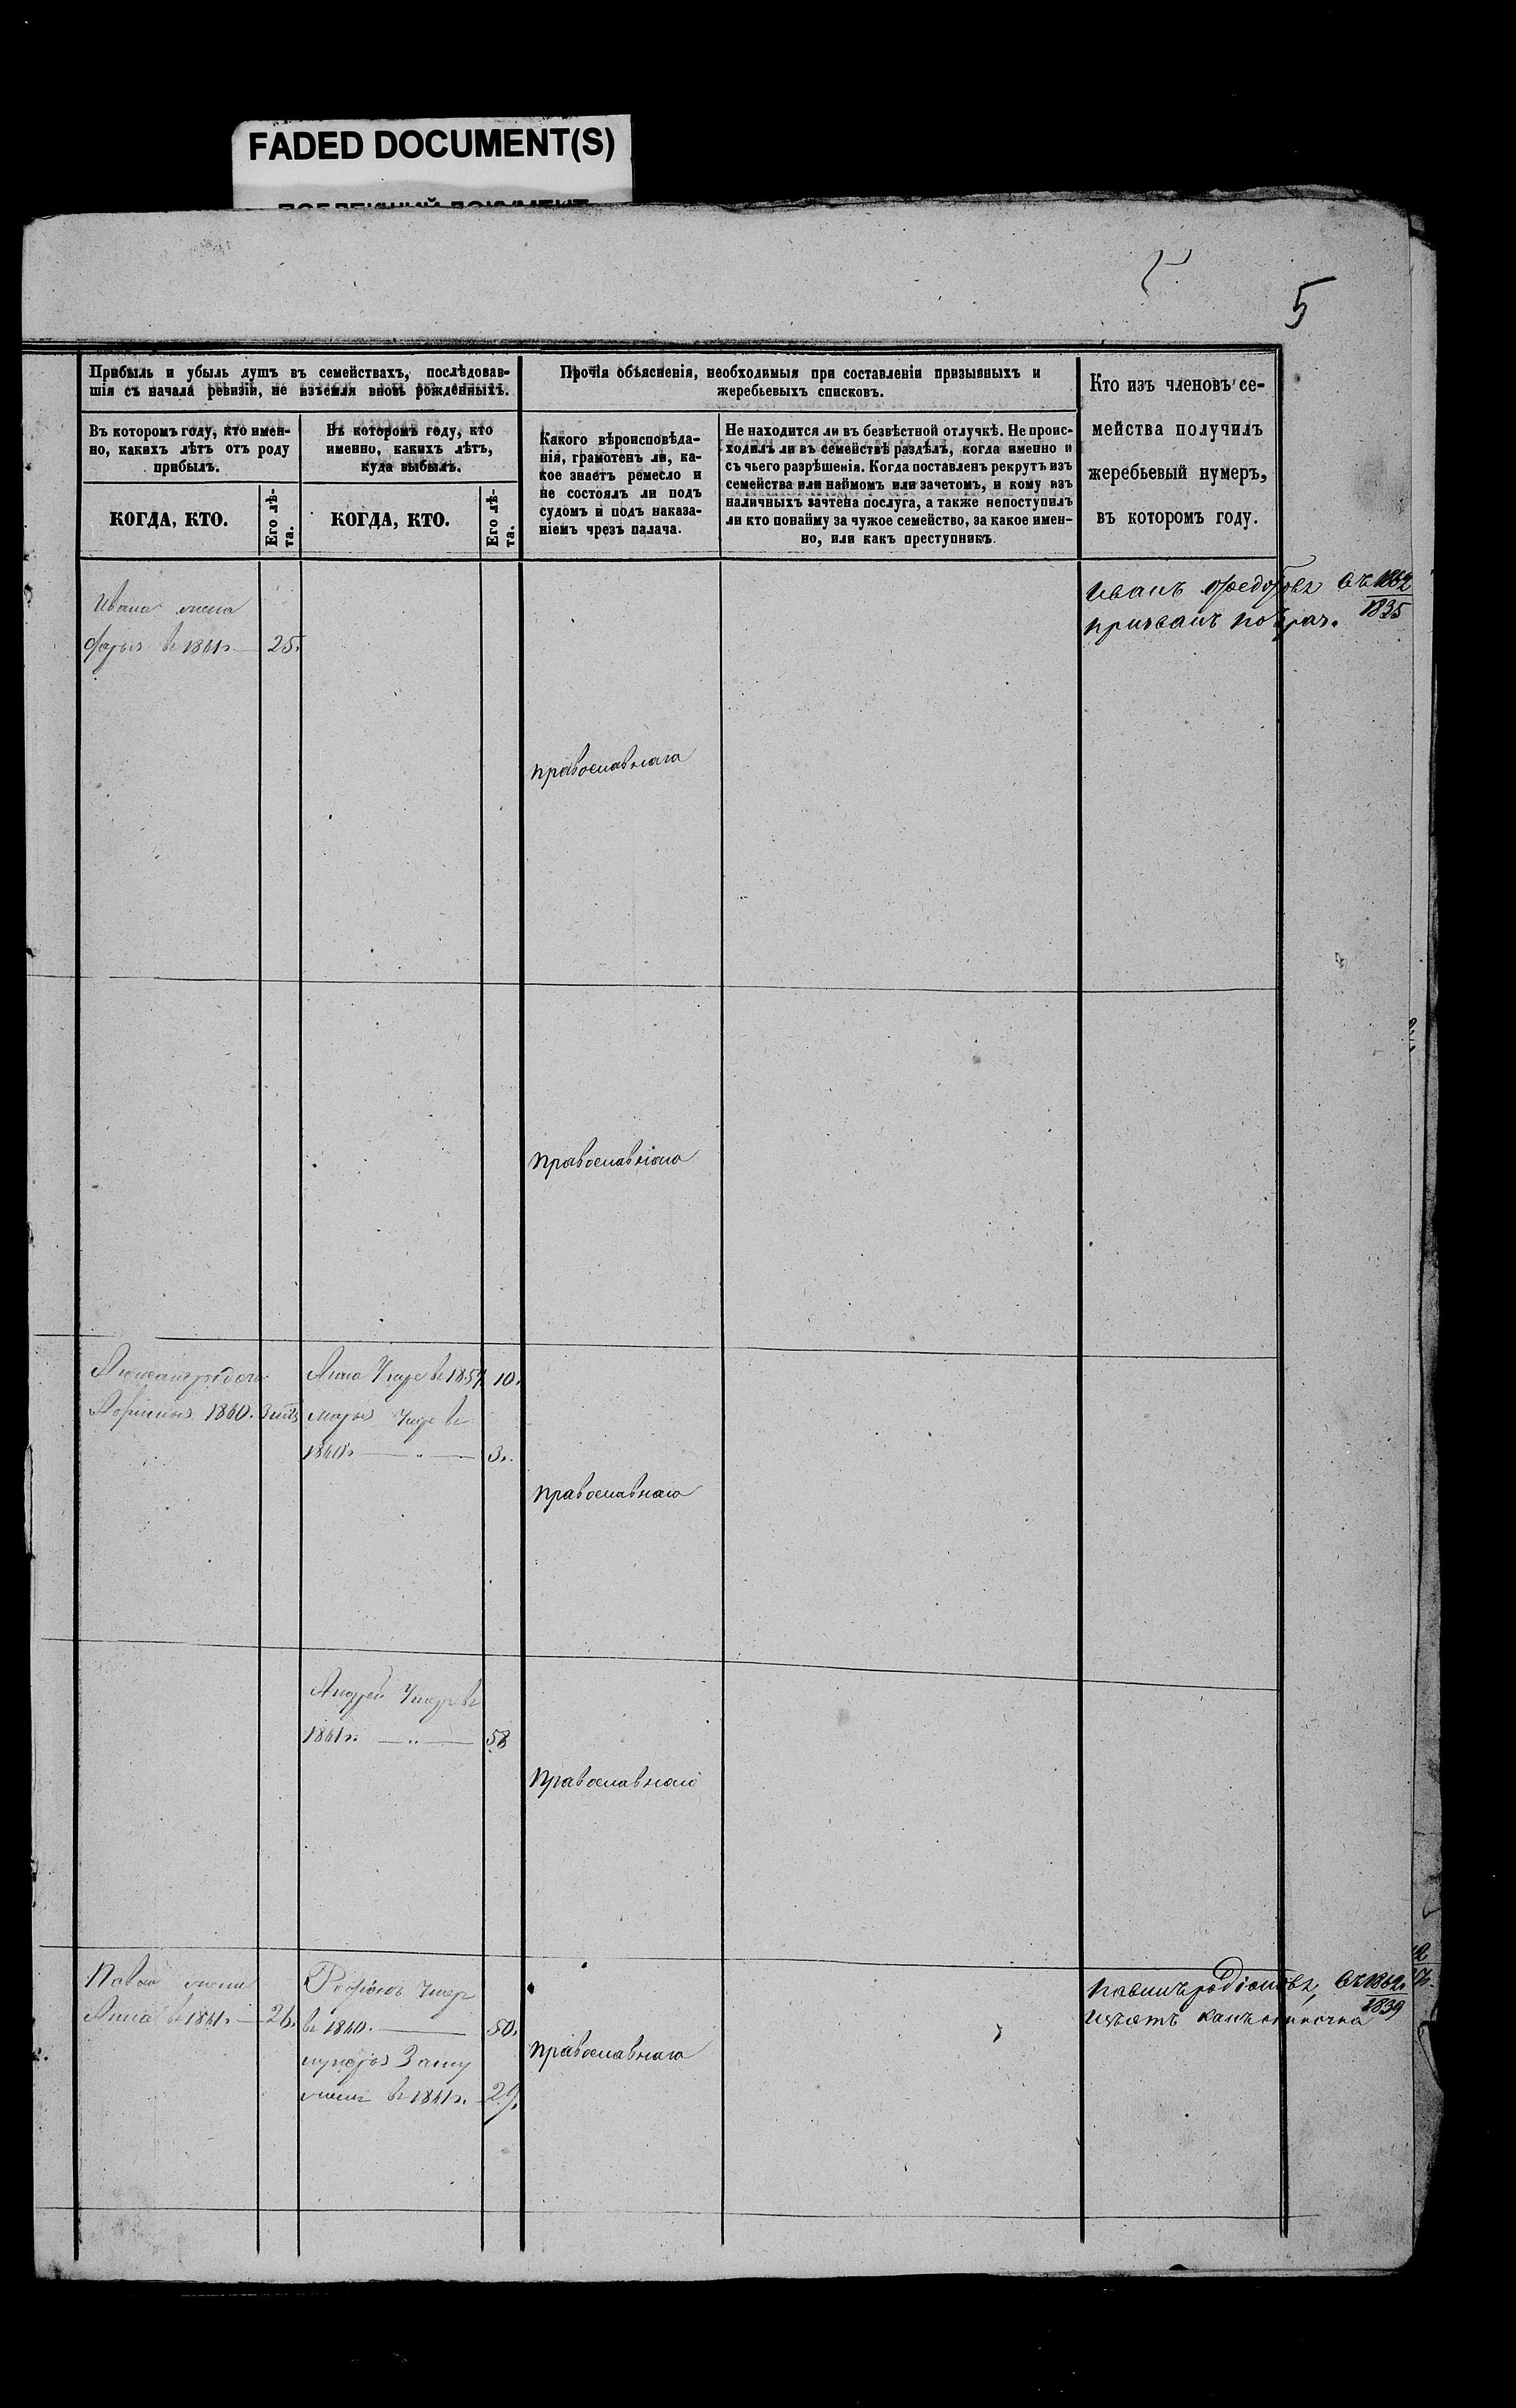 FADED DOCUMENT(S)
5
Прибыль и убыль душъ въ семействахъ, послѣдовав-
шія съ начала ревизіи, не изъемля вновь рожденныхъ.
Прочія объясненія, необходимыя при составленіи призывныхъ и
жеребьевыхъ списковъ.
Кто изъ членовъ се-
мейства получилъ
жеребьевый нумеръ,
въ которомъ году.
Въ которомъ году, кто имен-
но, какихъ лѣтъ отъ роду
прибылъ.
Въ которомъ году, кто
именно, какихъ лѣтъ,
куда выбылъ.
Какого вѣроисповѣда-
нія, грамотенъ ли, ка-
кое знаетъ ремесло и
не состоялъ ли подъ
судомъ и подъ наказа-
ніемъ чрезъ палача.
Не находится ли въ безвѣстной отлучкѣ. Не проис-
ходилъ ли въ семействѣ раздѣлъ, когда именно и
съ чьего разрѣшенія. Когда поставленъ рекрутъ изъ
семейства или наймомъ или зачетомъ, и кому изъ
наличныхъ зачтена послуга, а также непоступилъ
ли кто понайму за чужое семейство, за какое имен-
но, или какъ преступникъ.
КОГДА, КТО.
Его лѣ-
та.
КОГДА, КТО.
Его лѣ-
та.
Ивана жена
Дарья въ 1861г. 25.
Иванъ Федоровъ въ 1862
призванъ 1835
православнаго
православнаго
Александра дочь
1860.
Анна Умре въ 1859 10.
марья Умре въ
1860г. — " — 3.
православнаго
Андрей Умеръ въ
1861г. — " — 58
Православнаго
Павла жена
Анна въ 1861г. — 26.
Родіонъ Умеръ
въ 1860. — 50.
Замужъ
въ 1861г. 29.
православнаго
Павелъ родіоновъ, въ 1862.
1839